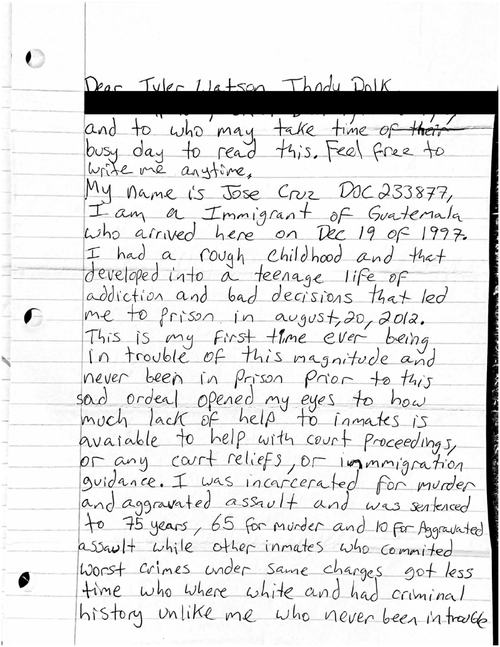 Dear Tyler Watson
and to who may take time of their
busy day to read this. Feel free to
write me anytime.
My name is Jose Cruz DOC 233877,
I am a Immigrant of Guatemala
who arrived here on Dec 19 of 1997.
I had a rough childhood and that
developed into a teenage life of
addiction and bad decisions that led
me to prison in august, 20, 2012.
This is my first time ever being
in trouble of this magnitude and
never been in prison prior to this
sad ordeal opened my eyes to how
much lack of help to inmates is
avaiable to help with court proceedings,
or any court reliefs, or immmigration
guidance. I was incarcerated for murder
and aggravated assault and was sentenced
to 75 years, 65 for murder and 10 for Aggravated
assault while other inmates who commited
worst crimes under same charges got less
time who where white and had criminal
history unlike me who never been in trouble